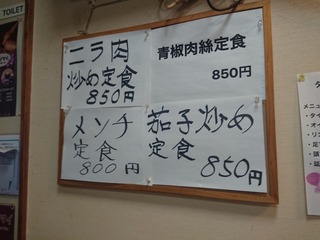 TOILET
ニラ肉
炒め定食
850円
青椒肉絲定食
850円
メンチ
定食
800円
茄子炒め
定食
850円
メニュー